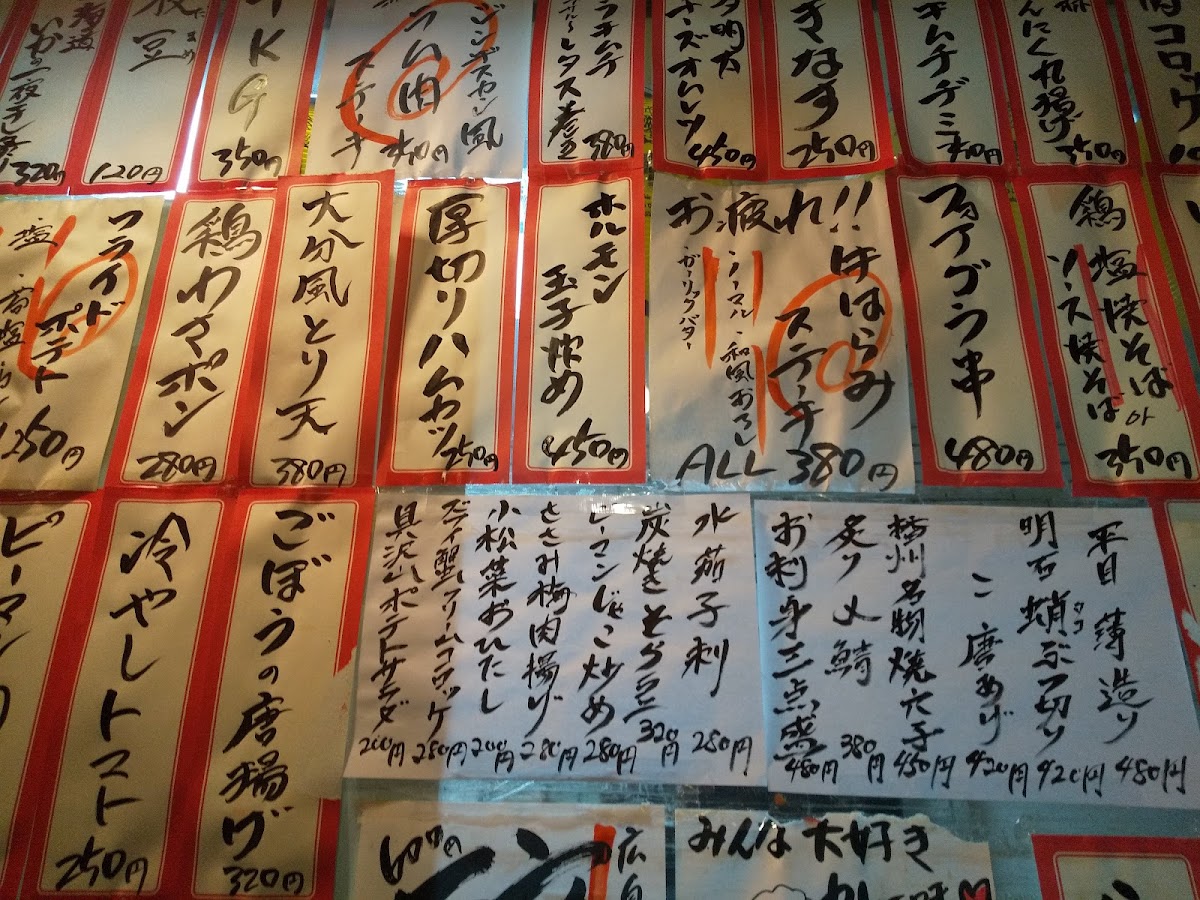 ジンギスカン風
ラム肉
ステーキ
450円
250円
350円
380円
TKG
350円
豆
120円
320円
鶏
塩焼そば or
ソース焼そば
350円
フォアグラ串
480円
お疲れ!!
牛はらみ
ステーキ
ノーマル・和風おろし
ガーリックバター
ALL 380円
ホルモン
玉子炒め
450円
厚切りハムカツ
250円
大分風とり天
380円
鶏わさポン
280円
フライド
ポテト
250円
平目薄造り 480円
明石蛸ぶつ切り 420円
タコ
唐あげ 420円
播州名物焼穴子 450円
炙り〆鯖 380円
お刺身三点盛 480円
水茄子刺 280円
炭焼きそら豆 320円
ピーマンじゃこ炒め 280円
ささみ梅肉揚げ 280円
小松菜おひたし 200円
ズワイ蟹クリームコロッケ 280円
具沢山ポテトサラダ 200円
ごぼうの唐揚げ
320円
冷やしトマト
250円
ピーマン
みんな大好き